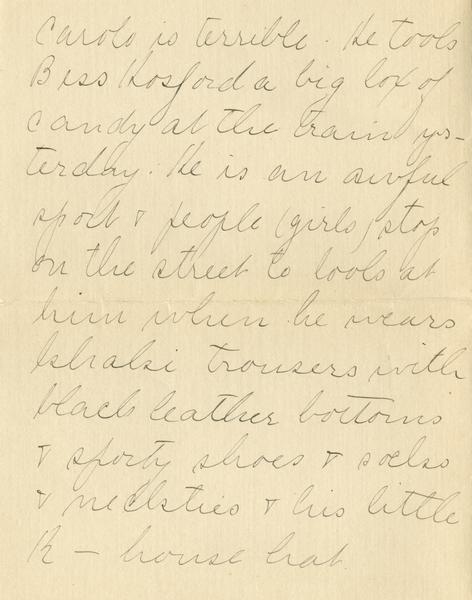 is terrible. He took
Bess Hosford a big box of
candy at the train yes-
terday. He is an awful
sport & people (girls) stop
on the street to look at
him when he wears
khaki trousers with
black leather bottoms
& sporty shoes & socks
& neckties & his little
R - house hat.